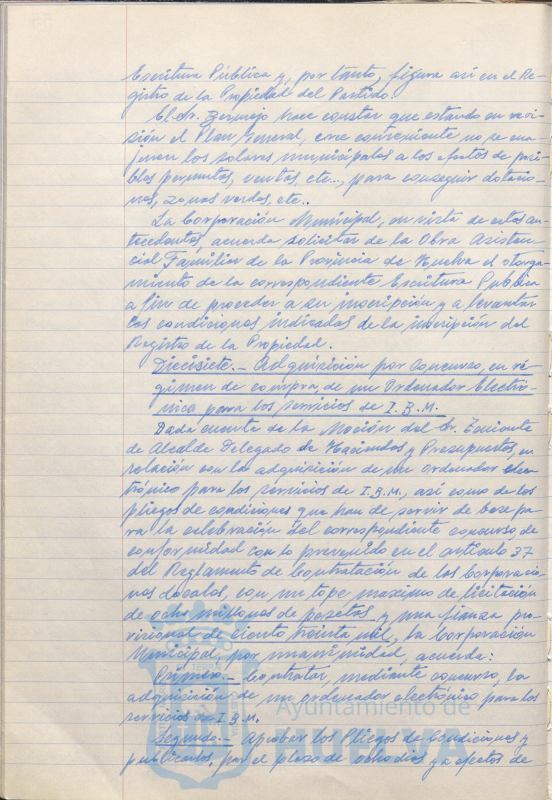 Escritura Pública y, por tanto, figura así en el Re-
gistro de la Propiedad del Partido.
El Sr. Bermejo hace constar que estando en revi-
sión el Plan General, cree conveniente no se ena-
jenen los solares municipales a los efectos de posi-
bles permutas, ventas, etc..., para conseguir dotacio-
nes, zonas verdes, etc..
La Corporación Municipal, en vista de estos an-
tecedentes, acuerda solicitar de la Obra Asisten-
cial Familiar de la Provincia de Huelva el otorga-
miento de la correspondiente Escritura Pública
a fin de proceder a ser inscripción y a levantar
las condiciones indicadas de la inscripción del
Registro de la Propiedad.
Diecisiete.- Adquisición por concurso, en ré-
gimen de compra, de un Ordenador Electró-
nico para los servicios de I.B.M.
Dada cuenta de la Moción del Sr. Teniente
de Alcalde Delegado de Hacienda y Presupuestos, en
relación con la adquisición de un ordenador elec-
trónico para los servicios de I.B.M, así como de los
pliegos de condiciones que han de servir de base pa-
ra la celebración del correspondiente concurso, de
conformidad con lo prevenido en el artículo 37
del Reglamento de Contratación de las Corporacio-
nes Locales, con un tope máximo de licitación
de ocho millones de pesetas y una fianza pro-
visional de ciento treinta mil, la Corporación
Municipal, por unanimidad, acuerda:
Primero.- Contratar, mediante concurso, la
adquisición de un ordenador electrónico para los
servicios de I.B.M.
Ayuntamiento de
HUELVA
Segundo.- Aprobar los Pliegos de Condiciones y
publicarlos, por el plazo de ocho días y a efectos de